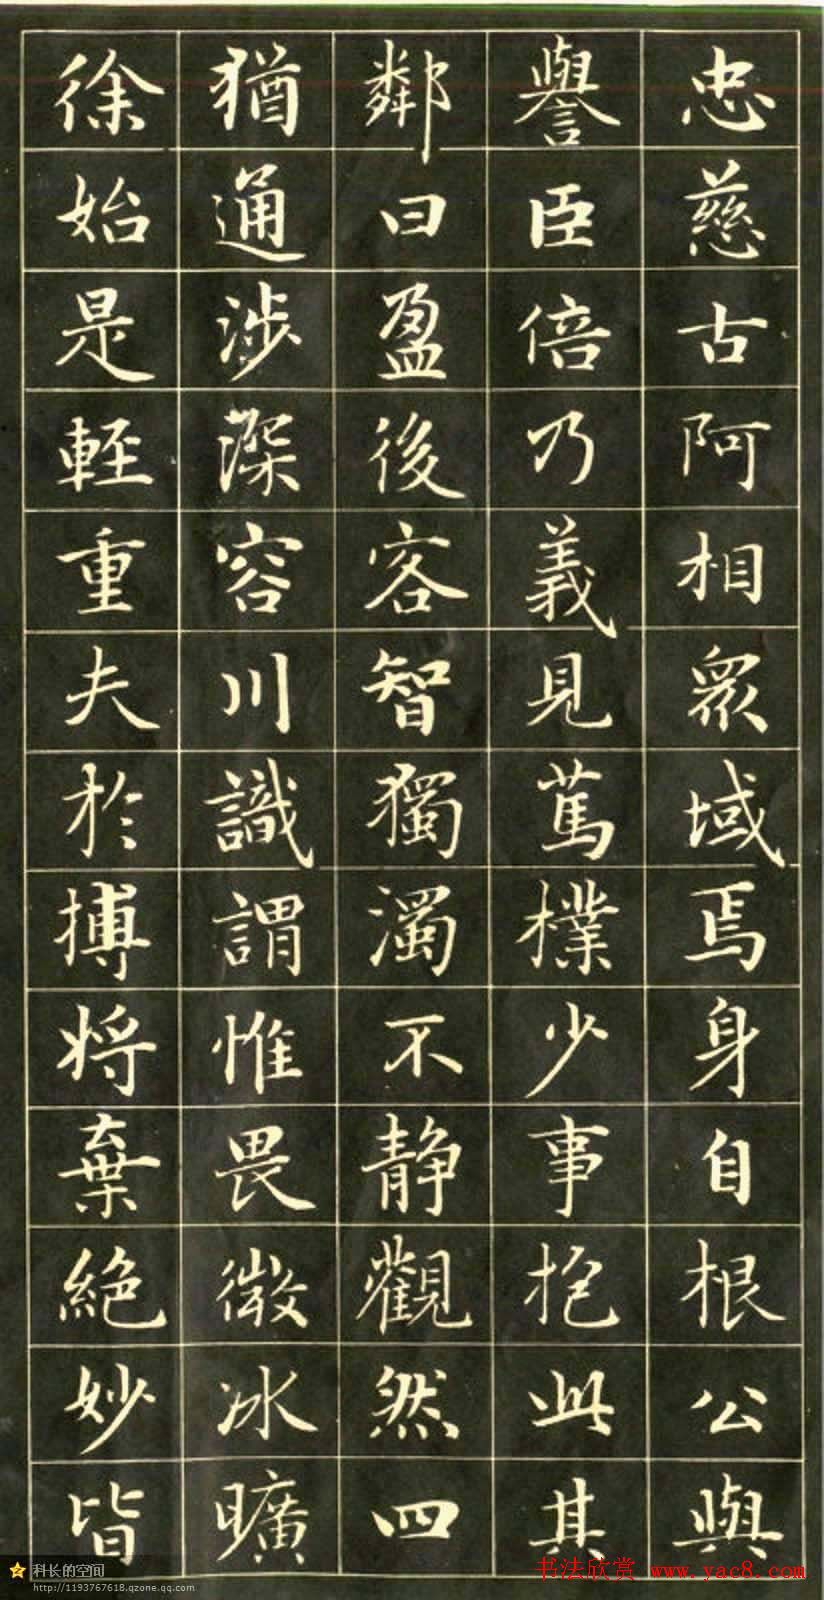 忠慈古阿相眾域焉身自根公與
譽臣倍乃義見篤樸少事抱此其
鄰曰盈後客智獨濁不静觀然四
猶通涉深容川識謂惟畏微冰曠
徐始是輕重夫於搏将棄絶妙皆
科长的空间
http://1193767618.qzone.qq.com
书法欣赏 www.yac8.com